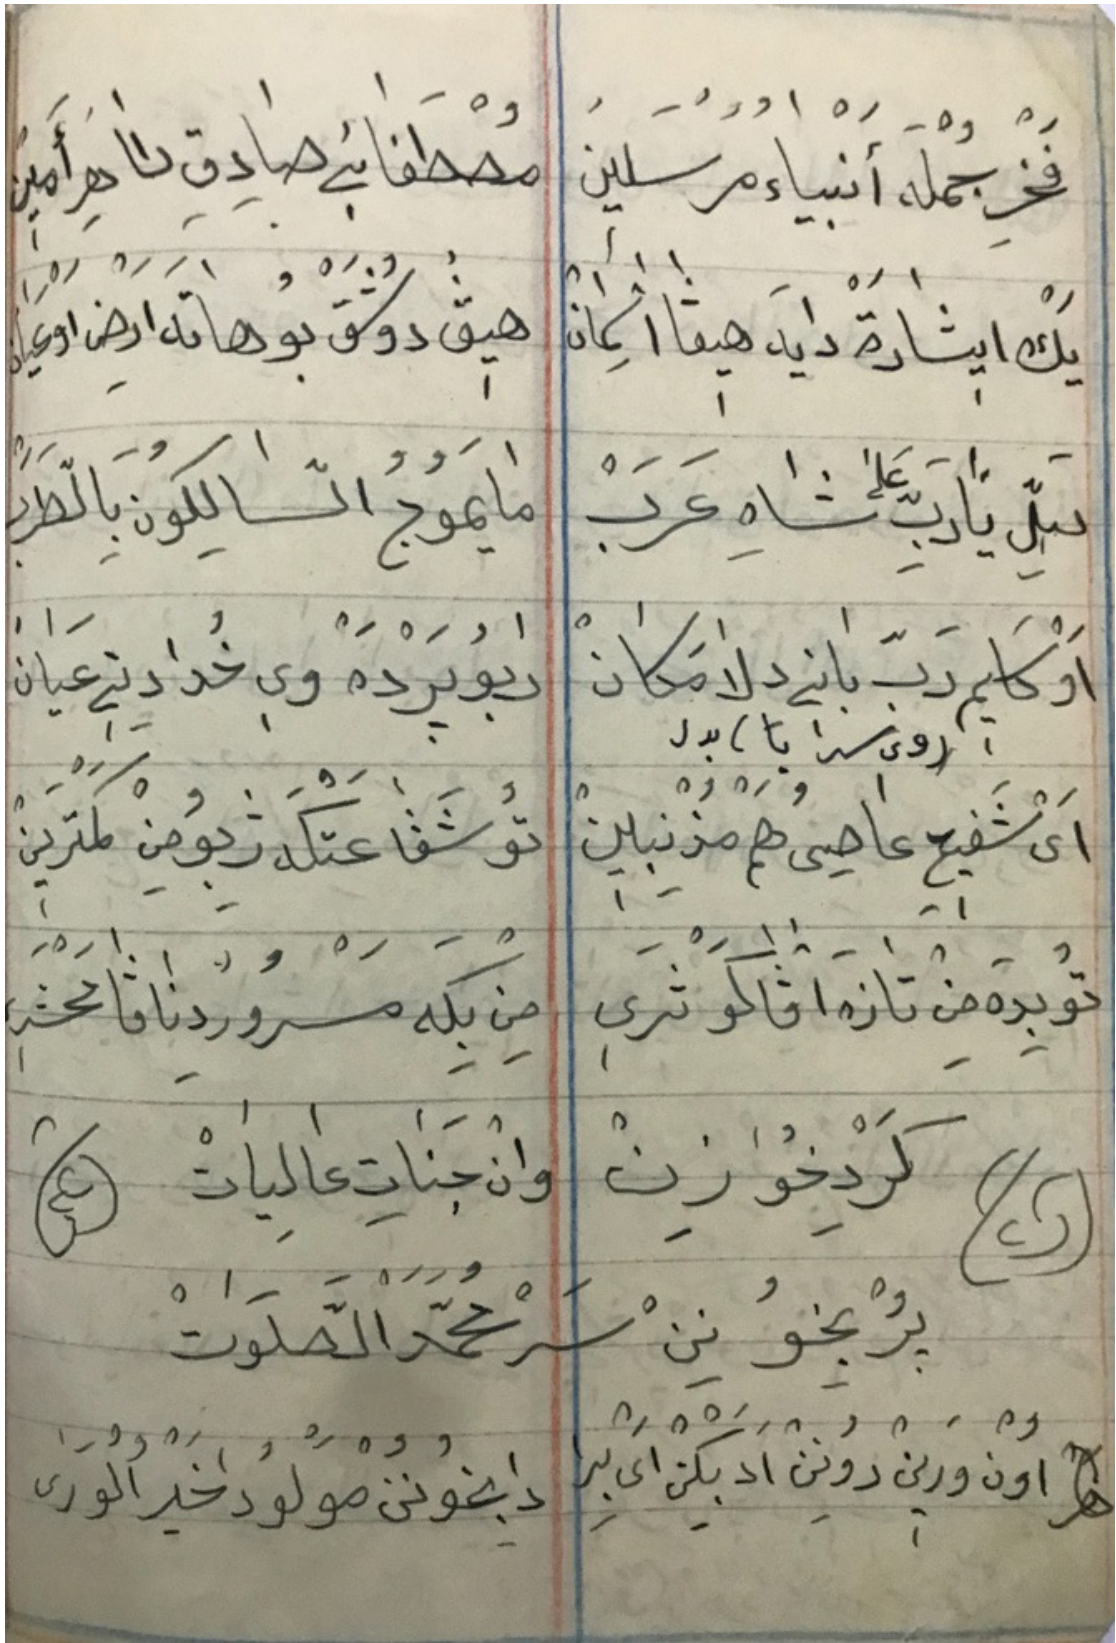 فَخْرِ جُمْلَه أَنْبِيَاء مُرْسَلِينْ مُصْطَفَائِي صَادِقِ طَاهِرْ أَمِينْ
يَكْ ايشَارَةْ دَايَه هيڤَا اسْمَانْ هيڤْ دُوشَقْ بُو هَاتَه ارَضِ اوْ عَيَانْ
صَلِّ يَا رَبِّ عَلَى شَاهِ عَرَبْ مَا يَمُوجُ السَّالِكُونَ بِالطَّرَبْ
اَوْ كَلِيم رَبّ بَانِي دلَامَكَانْ رَابُو پَرْدَه وِي خُدَا دِيتِي عَيَانْ
(وى سرا پا) بدل
اَىْ شَفِيعِ عَاصِى هُمْ مُذْنِبِينْ تُو شَفَاعَتْكَه ژِبُو مِنْ كَمْتَرِينْ
تُو بِدَه مِنْ تَازَه اڤَا كَوْثَرِى مِنْ بِكَه مَسْرُورْ دِنَاڤَا مَحْشَرِى
گَرْ دِخْوَازِنْ وَانْ جَنَاتِ عَالِيَاتْ
پُرْ بِخُونِنْ سَرْ مُحَمَّدْ الصَّلَوَاتْ
اونْ وَرِينْ رُونِنْ اَدَبْ كِنْ اَىْ بِرَا دَا بِخُونِنْ مَولُودَا خَيْرَ الْوَرَى